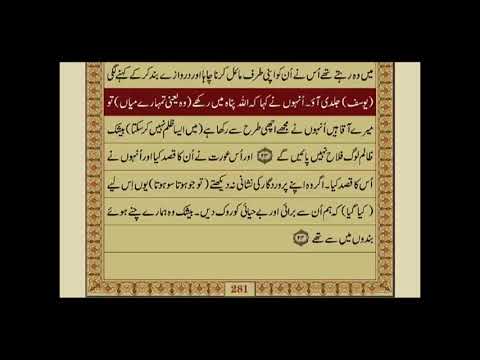 میں وہ رہتے تھے اُس نے اُن کو اپنی طرف مائل کرنا چاہا اور دروازے بند کر کے کہنے لگی
(یوسف) جلدی آؤ۔ اُنہوں نے کہا کہ اللہ پناہ میں رکھے (وہ یعنی تمہارے میاں) تو
میرے آقا ہیں اُنہوں نے مجھے اچھی طرح سے رکھا ہے (میں ایسا ظلم نہیں کرسکتا) بیشک
ظالم لوگ فلاح نہیں پائیں گے ﴿۲۳﴾ اور اُس عورت نے اُن کا قصد کیا اور اُنہوں نے
اُس کا قصد کیا۔ اگر وہ اپنے پروردگار کی نشانی نہ دیکھتے (تو جو ہوتا سو ہوتا) یوں اِس لیے
(کیا گیا) کہ ہم اُن سے برائی اور بے حیائی کو روک دیں۔ بیشک وہ ہمارے چنے ہوئے
بندوں میں سے تھے ﴿۲۴﴾
281